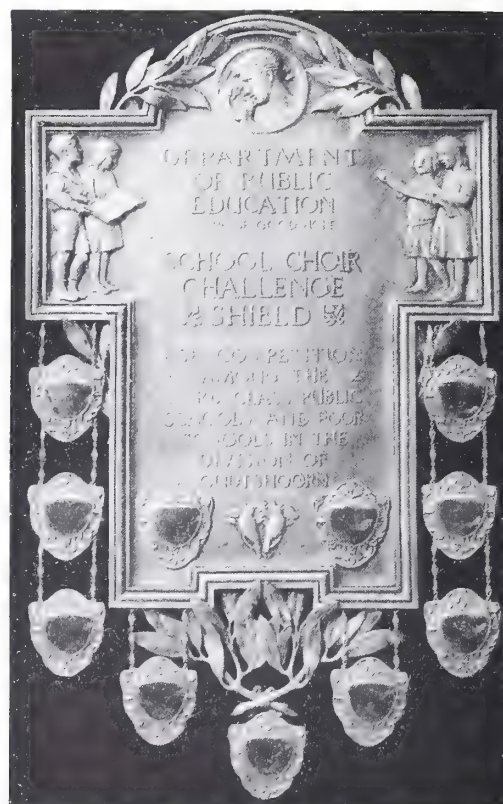 DEPARTMENT
OF PUBLIC
EDUCATION
SCHOOL CHOIR
CHALLENGE
SHIELD
FOR COMPETITION
AMONG THE
CLASS PUBLIC
SCHOOLS AND POOR
SCHOOLS IN THE
DIVISION OF
OUDTSHOORN